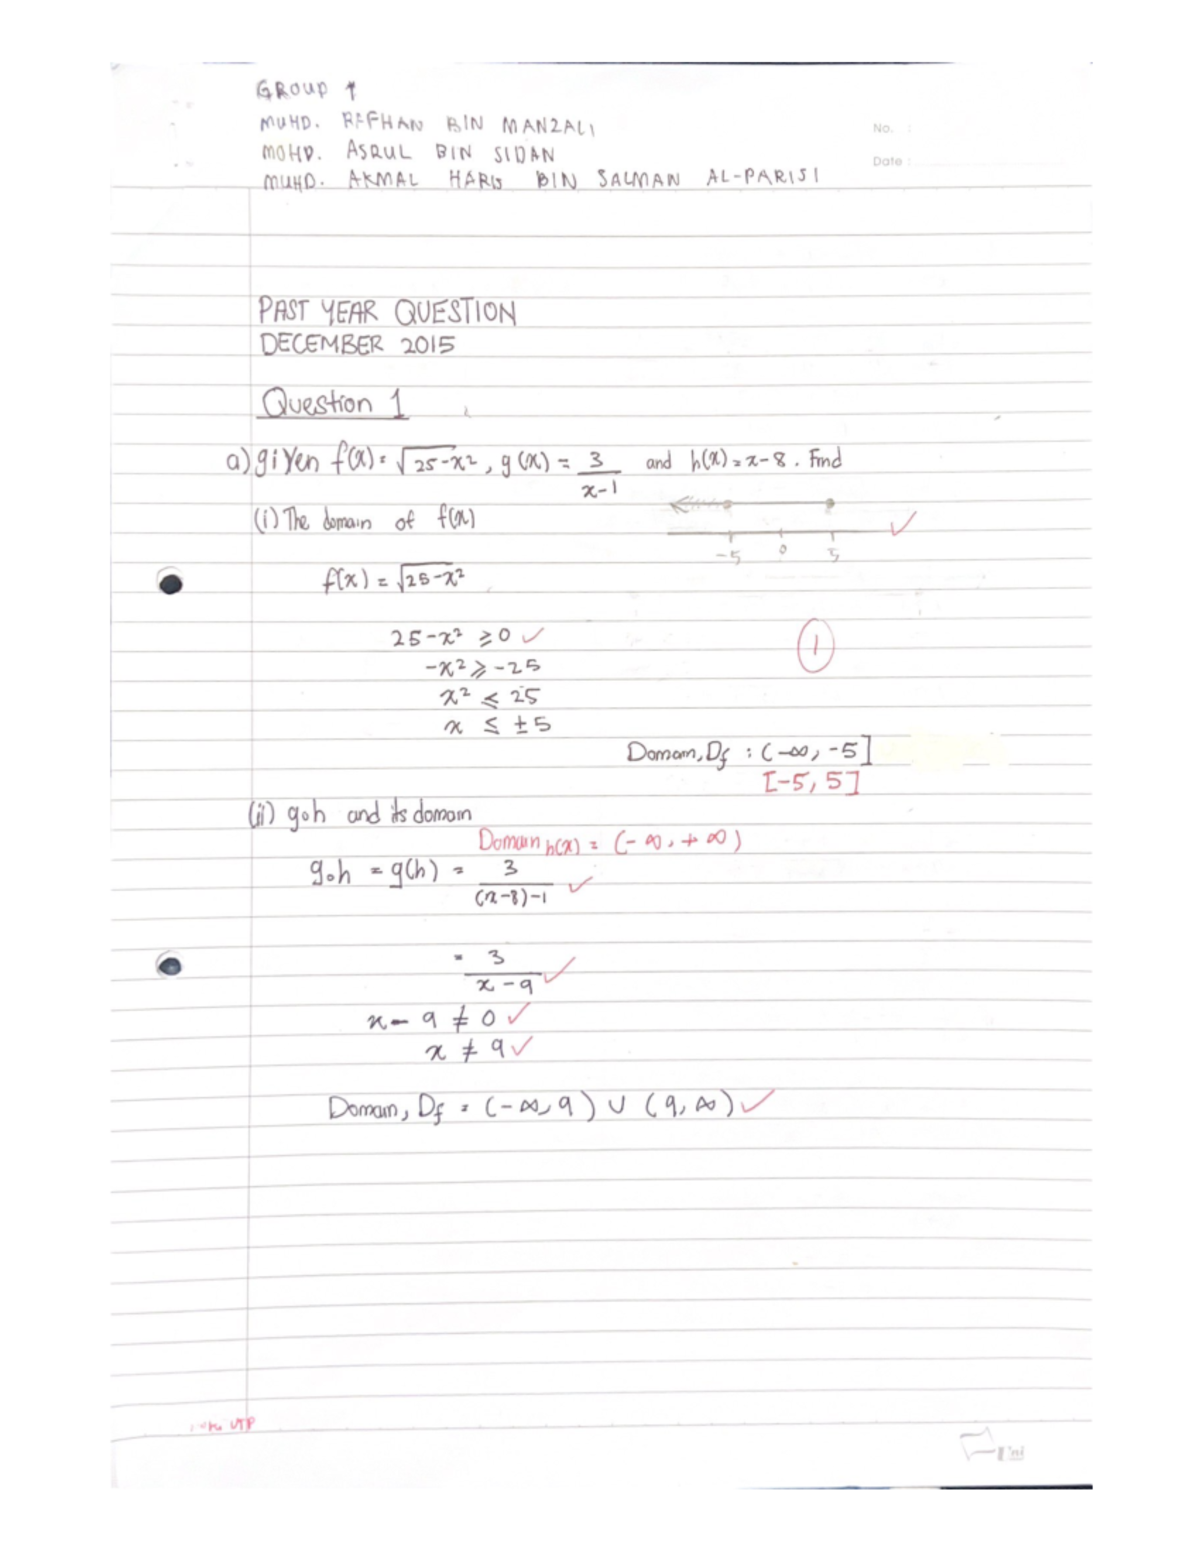 GROUP 1
MUHD. RAFHAN BIN MANZALI
MOHD. ASRUL BIN SIDAN
No. :
Date :
MUHD. AKMAL BIN SALMAN AL-PARISI
PAST YEAR QUESTION
DECEMBER 2015
Question 1
a) given f(x) = √25-x², g(x) = 3/(x-1) and h(x) = x-8. Find
(i) The domain of f(x)
-5 0 5
f(x) = √25-x²
25-x² ≥ 0 ✓
1
-x² ≥ -25
x² ≤ 25
x ≤ ±5
Domain, Df : (-∞, -5]
[-5, 5]
(ii) goh and its domain
Domain h(x) = (-∞, +∞)
goh = g(h) = 3/((x-8)-1) ✓
= 3/(x-9) ✓
x - 9 ≠ 0 ✓
x ≠ 9 ✓
Domain, Df = (-∞, 9) ∪ (9, ∞) ✓